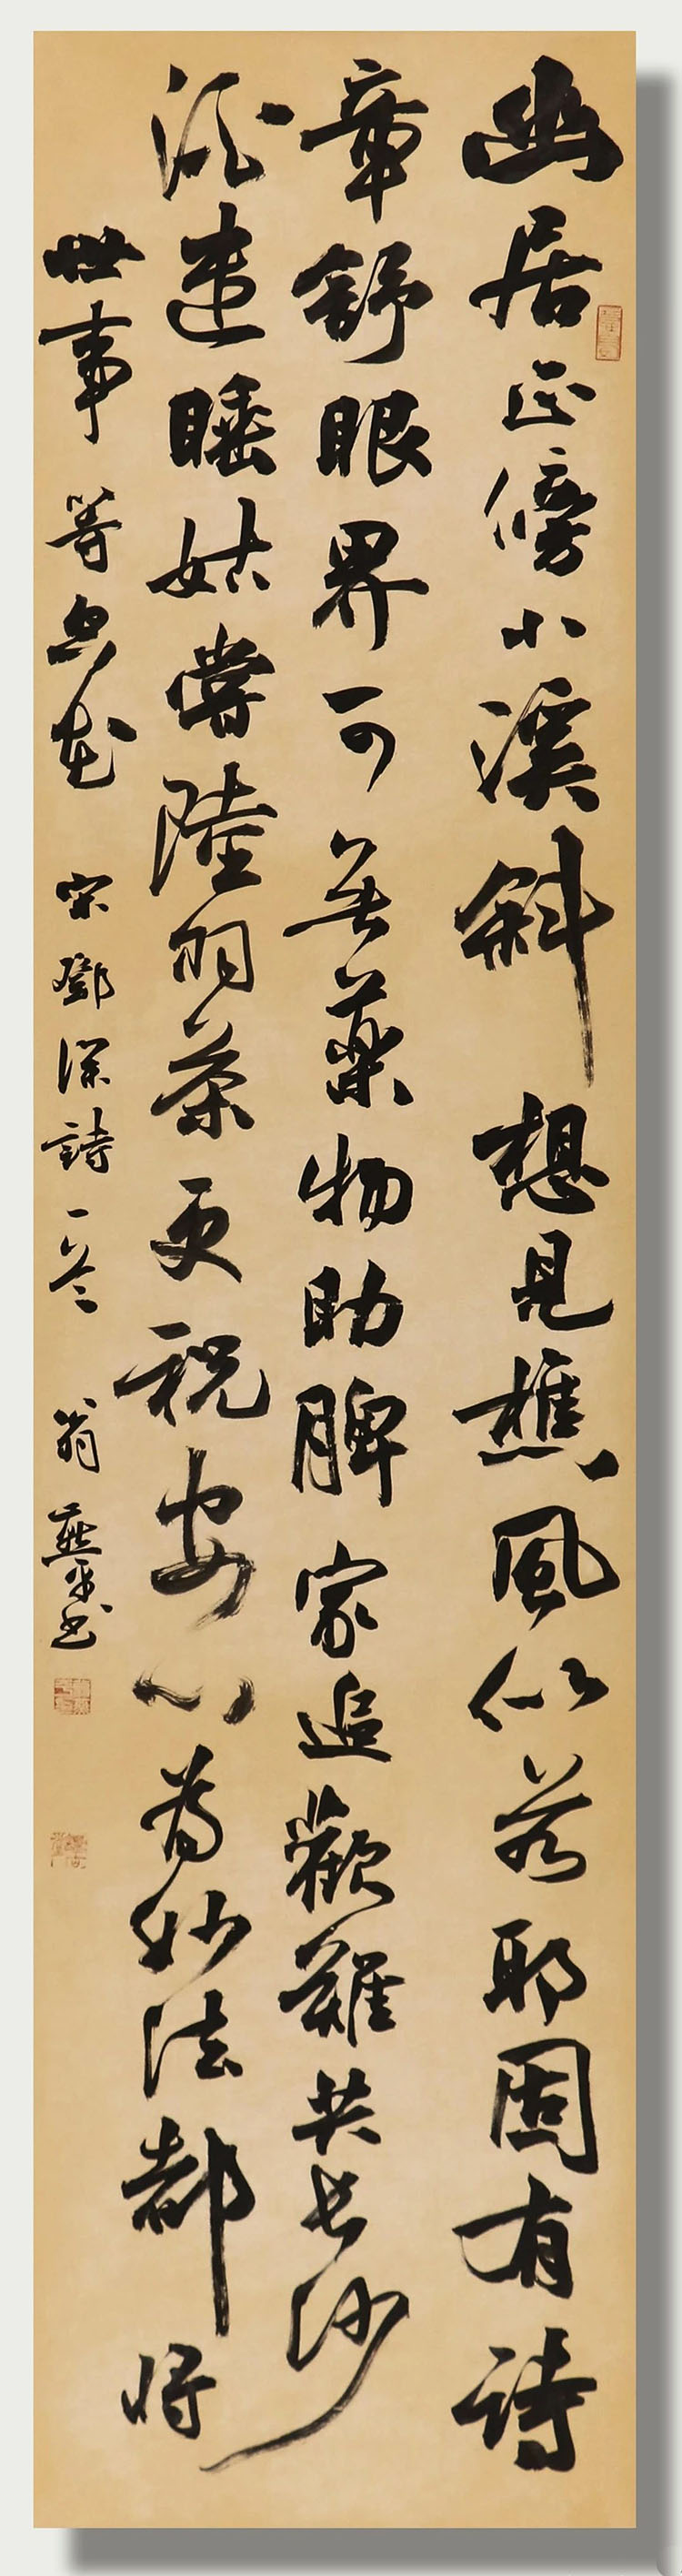 幽居正傍小溪斜想見樵風似若耶固有詩
章舒眼界可無藥物助脾家追歡難共長沙
酒遣睡姑嘗陸羽茶更祝安心為妙法都將
世事等空花宋鄧深詩一首翁燕平書